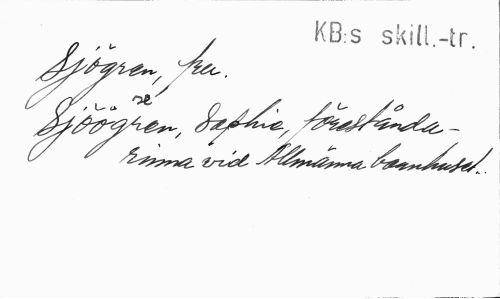 KB:s skill.-tr.
Sjögren, fru.
se
Sjöögren, Sophia, förestånda-
rinna vid Allmänna barnhuset.